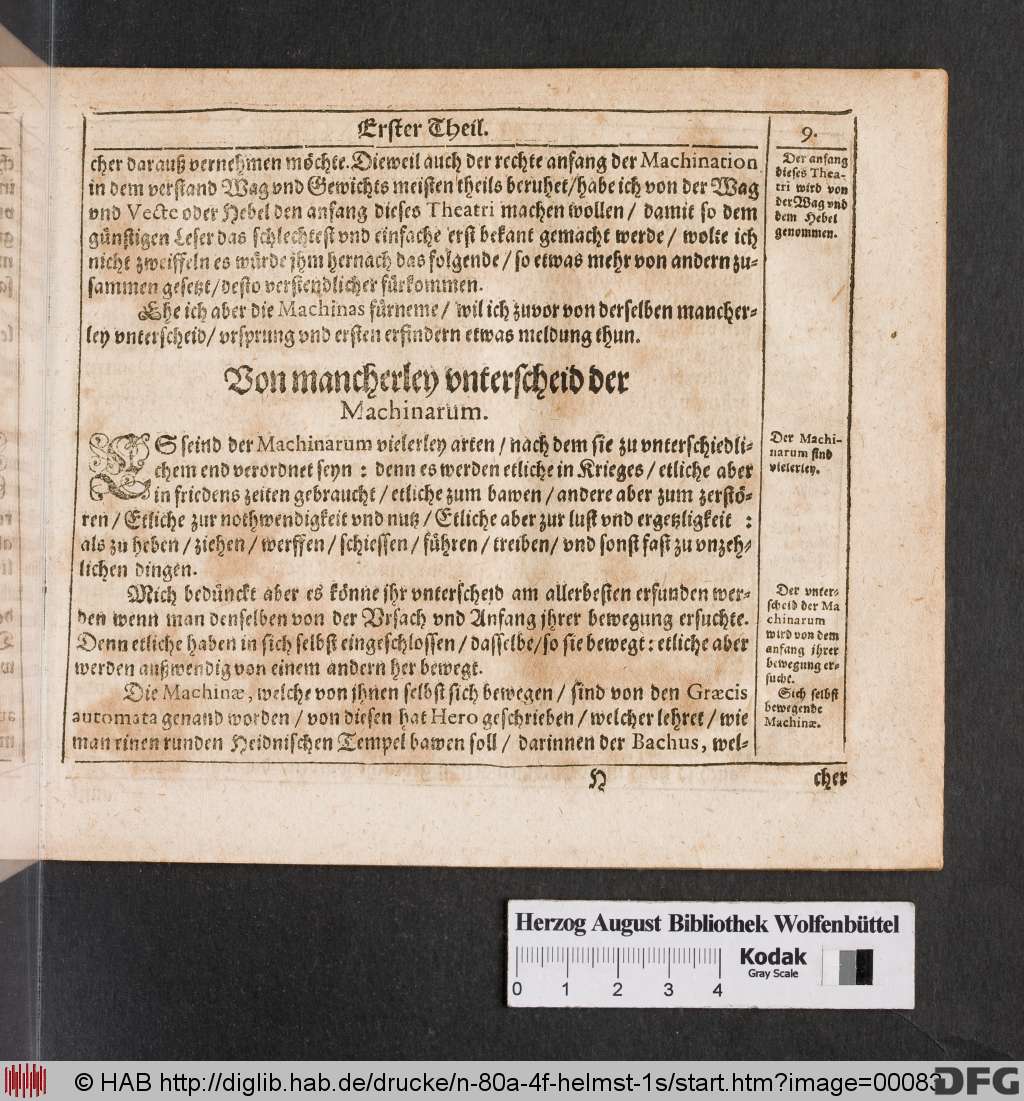 Erster Theil.
9.
cher darauß vernehmen möchte. Dieweil auch der rechte anfang der Machination
in dem verstand Wag vnd Gewichts meisten theils beruhet/habe ich von der Wag
vnd Vecte oder Hebel den anfang dieses Theatri machen wollen/ damit so dem
günstigen Leser das schlechtest vnd einfache erst bekant gemacht werde/ wolte ich
nicht zweiffeln es würde jhm hernach das folgende/ so etwas mehr von andern zu-
sammen gesetzt/desto verstendlicher fürkommen.
Ehe ich aber die Machinas fürneme/ wil ich zuvor von derselben mancher-
ley vnterscheid/ vrsprung vnd ersten erfindern etwas meldung thun.
Der anfang
dieses Thea-
tri wird von
der Wag vnd
dem Hebel
genommen.
Von mancherley vnterscheid der
Machinarum.
ES seind der Machinarum vielerley arten/ nach dem sie zu vnterschiedli-
chem end verordnet seyn: denn es werden etliche in Krieges/ etliche aber
in friedens zeiten gebraucht/ etliche zum bawen/ andere aber zum zerstö-
ren/ Etliche zur nothwendigkeit vnd nutz/ Etliche aber zur lust vnd ergetzligkeit :
als zu heben/ ziehen/ werffen/ schiessen/ führen/ treiben/ vnd sonst fast zu vnzeh-
lichen dingen.
Der Machi-
narum sind
vielerley.
Mich bedünckt aber es könne jhr vnterscheid am allerbesten erfunden wer-
den wenn man denselben von der Vrsach vnd Anfang jhrer bewegung ersuchte.
Denn etliche haben in sich selbst eingeschlossen/ dasselbe/so sie bewegt: etliche aber
werden außwendig von einem andern her bewegt.
Die Machinæ, welche von jhnen selbst sich bewegen/ sind von den Græcis
automata genand worden/ von diesen hat Hero geschrieben/ welcher lehret/ wie
man einen runden Heidnischen Tempel bawen soll/ darinnen der Bachus, wel-
Der vnter-
scheid der Ma
chinarum
wird von dem
anfang ihrer
bewegung er-
sucht.
Sich selbst
bewegende
Machinæ.
H
cher
Herzog August Bibliothek Wolfenbüttel
Kodak
Gray Scale
0 1 2 3 4
© HAB http://diglib.hab.de/drucke/n-80a-4f-helmst-1s/start.htm?image=00083
DFG